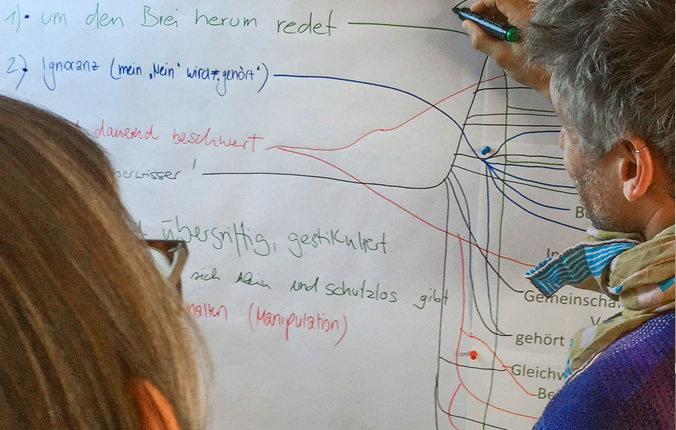 1) um den Brei herum redet
2) Ignoranz (mein "Nein" wird gehört")
dauernd beschwert
erwisser!
übergriffig, gestikuliert
sich klein und schutzlos gibt
halten (Manipulation)
B
In
Gemeinscha
V
gehört
Gleichw
Be